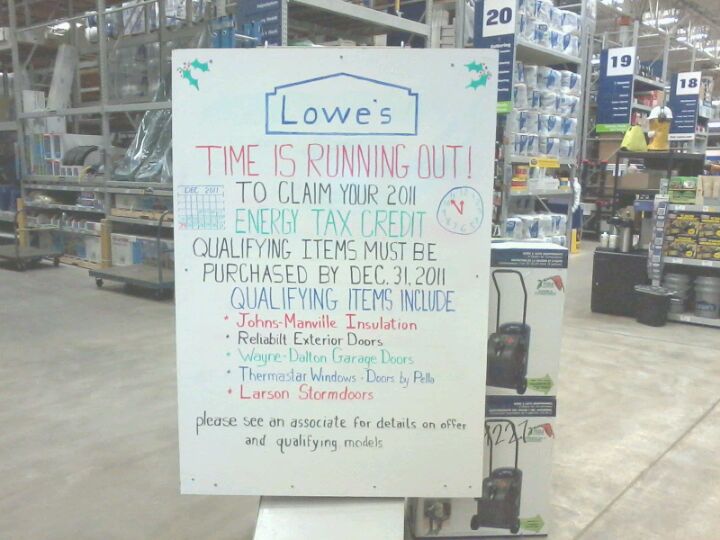 Lowe's
TIME IS RUNNING OUT!
DEC. 2011
TO CLAIM YOUR 2011
ENERGY TAX CREDIT
QUALIFYING ITEMS MUST BE
PURCHASED BY DEC. 31, 2011
QUALIFYING ITEMS INCLUDE
* Johns-Manville Insulation
* Reliabilt Exterior Doors
* Wayne-Dalton Garage Doors
* Thermastar Windows - Doors by Pella
* Larson Stormdoors
please see an associate for details on offer
and qualifying models
20
19
18